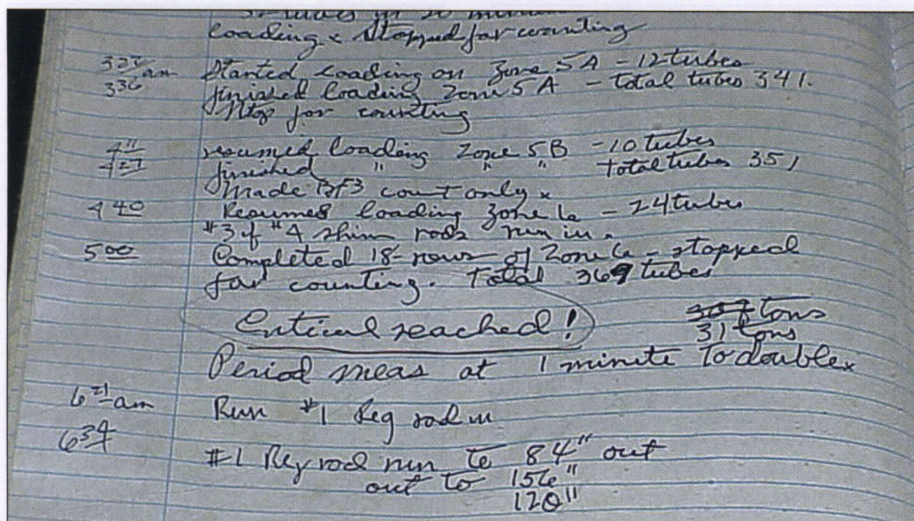 37 tubes in 20 minutes
loading & stopped for counting
3 27 am Started loading on Zone 5A - 12 tubes
3 36 finished loading Zone 5A - total tubes 341.
Stop for counting
4 11 resumed loading Zone 5B - 10 tubes
4 27 finished " " " Total tubes 351
Made BF3 count only x
4 40 Resumed loading Zone 6 - 24 tubes
#3 & #4 shim rods run in.
5 00 Completed 18 - rows of Zone 6 - stopped
for counting. Total 369 tubes
Critical reached! tons
31 tons
Period meas at 1 minute to double x
6 21 am Run #1 Reg rod in
6 34
#1 Reg rod run to 84" out
out to 156"
120"